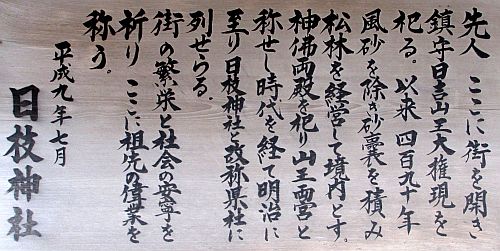 先人 ここに街を開き
鎮守日吉山王大権現を
祀る。以来 四百九十年
風砂を除き砂嚢を積み
松林を経営して境内とす。
神佛両殿を祀り山王両宮と
称せし時代を経て明治に
至り日枝神社と改称県社に
列せらる。
街の繁栄と社会の安寧を
祈り ここに祖先の偉業を
称う。
平成九年七月
日枝神社